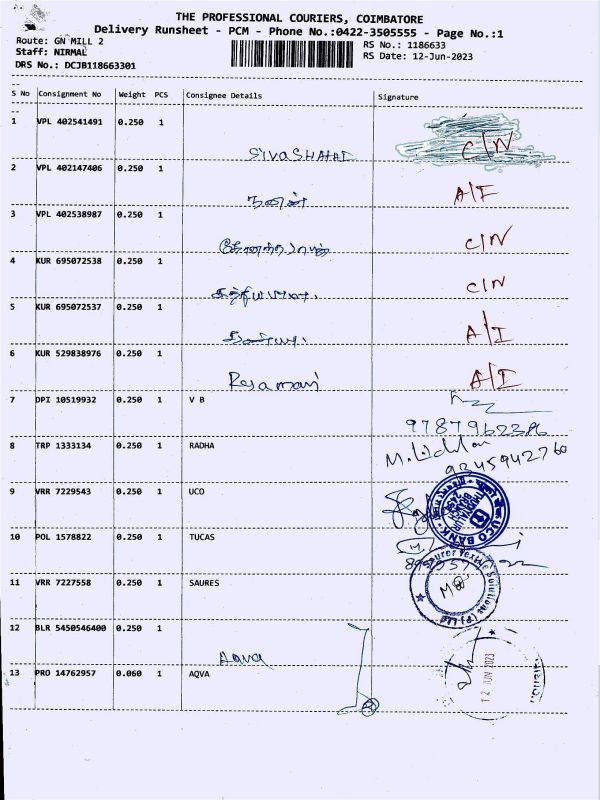 THE PROFESSIONAL COURIERS, COIMBATORE
Delivery Runsheet - PCM - Phone No.:0422-3505555 - Page No.:1
Route: GN MILL 2
RS No.: 1186633
Staff: NIRMAL
RS Date: 12-Jun-2023
DRS No.: DCJB118663301
S No Consignment No Weight PCS Consignee Details Signature
1 VPL 402541491 0.250 1
C/N
2 VPL 402147406 0.250 1
A/I
3 VPL 402538987 0.250 1
C/N
4 KUR 695072538 0.250 1
C/N
5 KUR 695072537 0.250 1
A/I
6 KUR 529838976 0.250 1
Rajamani A/I
7 DPI 10519932 0.250 1 V B
9787962386
8 TRP 1333134 0.250 1 RADHA
9345942760
9 VRR 7229543 0.250 1 UCO
UCO BANK
10 POL 1578822 0.250 1 TUCAS
11 VRR 7227558 0.250 1 SAURES
Textile Solutions (P) Ltd
12 BLR 5450546400 0.250 1
Aqva
13 PRO 14762957 0.060 1 AQVA
12 JUN 2023